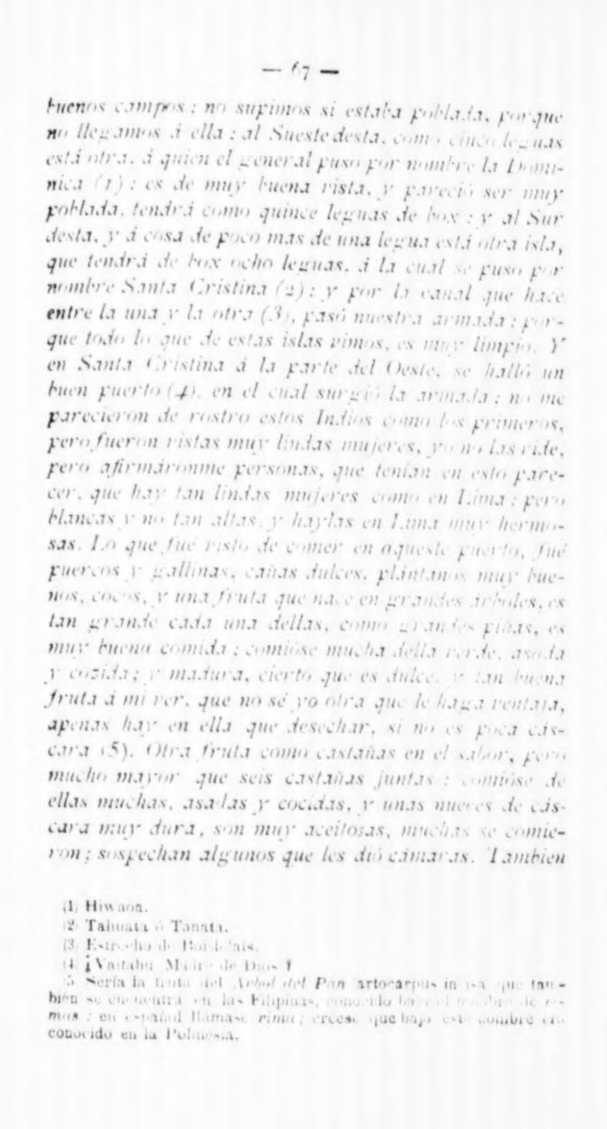 — 67 —
buenos campos ; no supimos si estaba poblada, porque
no llegamos á ella ; al Sueste desta, como cinco leguas
está otra, á quien el general puso por nombre la Domi-
nica (1) ; es de muy buena vista, y pareció ser muy
poblada, tendrá como quince leguas de box ; y al Sur
desta, y á cosa de poco mas de una legua está otra isla,
que tendrá de box ocho leguas, á la cual se puso por
nombre Santa Cristina (2) ; y por la canal que hace
entre la una y la otra (3), pasó nuestra armada ; por-
que todo lo que de estas islas vimos, es muy limpio. Y
en Santa Cristina á la parte del Oeste, se halló un
buen puerto (4), en el cual surgió la armada ; no me
parecieron de rostro estos Indios como los primeros,
pero fueron vistas muy lindas mujeres, yo no las vide,
pero afirmáronme personas, que tenían en esto pare-
cer, que hay tan lindas mujeres como en Lima ; pero
blancas y no tan altas, y haylas en Lima muy hermo-
sas. Lo que fué visto de comer en aqueste puerto, fué
puercos y gallinas, cañas dulces, plántanos muy bue-
nos, cocos, y una fruta que nace en grandes árboles, es
tan grande cada una dellas, como grandes piñas, es
muy buena comida ; comióse mucha della verde, asada
y cozida ; y madura, cierto que es dulce, y tan buena
fruta á mi ver, que no sé yo otra que le haga ventaja,
apenas hay en ella que desechar, si no es poca cás-
cara (5). Otra fruta como castañas en el sabor, pero
mucho mayor que seis castañas juntas ; comióse de
ellas muchas, asadas y cocidas, y unas nueces de cás-
cara muy dura, son muy aceitosas, muchas se comie-
ron ; sospechan algunos que les dió cámaras. Tambien
(1) Hiwaoa.
(2) Tahuata ó Tanata.
(3) Estrecho de
(4) ¿ Vaitahu Madre de Dios ?
(5) Sería la fruta del Arbol del Pan artocarpus que tam-
bién se encuentra en las Filipinas, conocido bajo el nombre de
mas ; en español llámase rima ; créese que bajo este nombre era
conocido en la Polinesia.